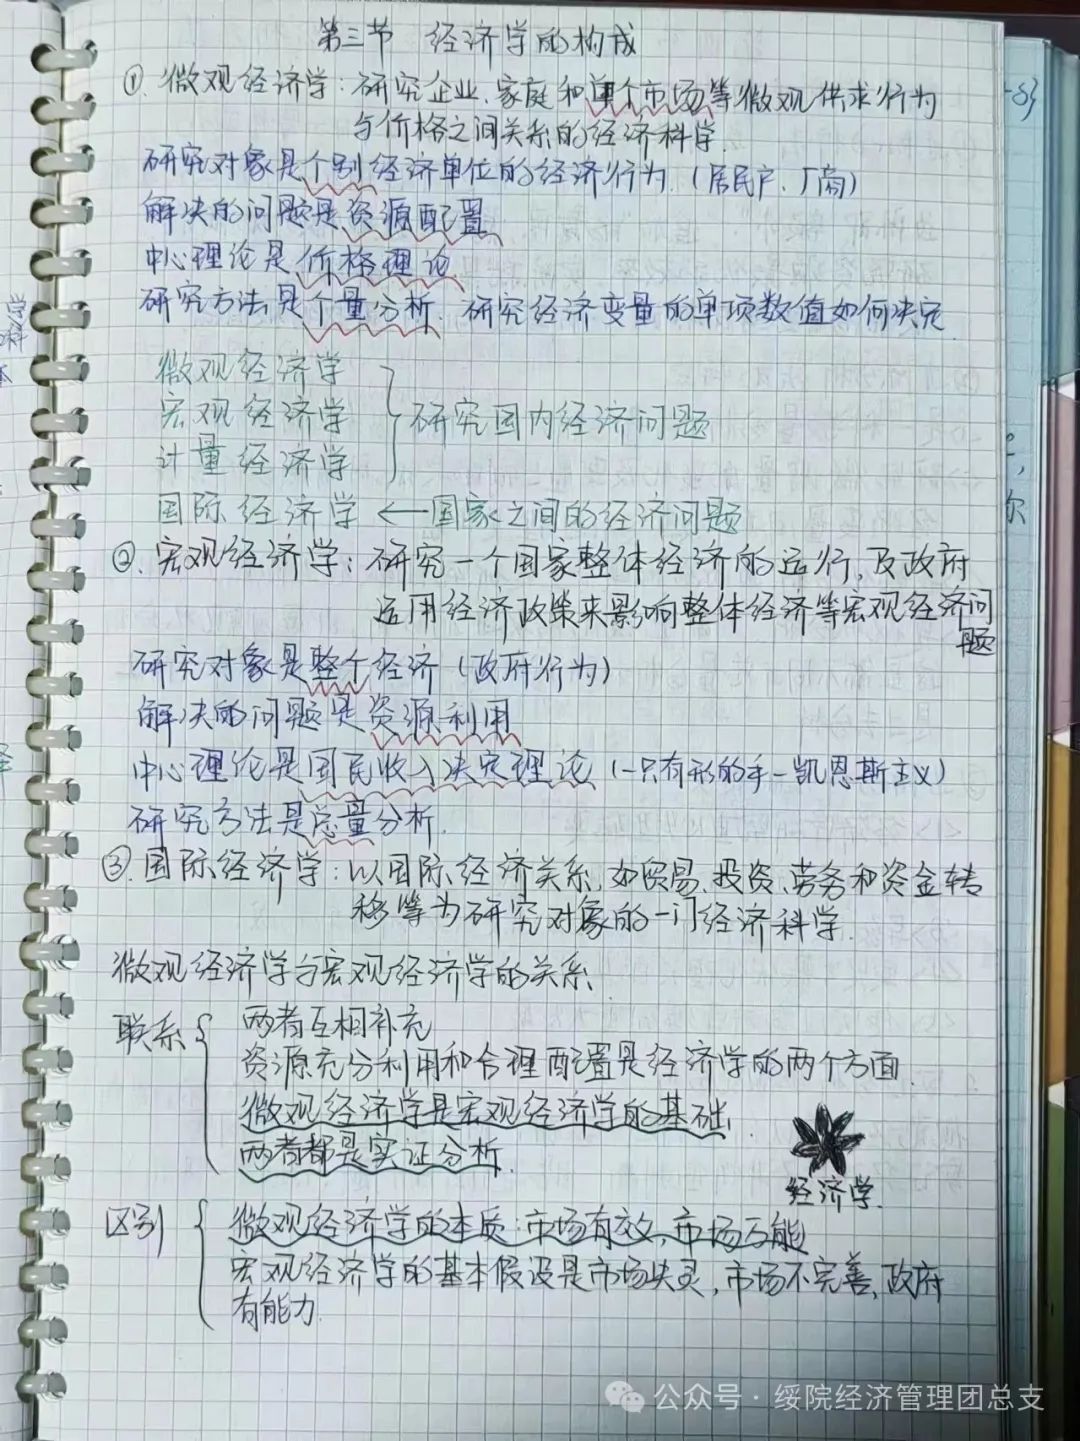 第三节 经济学的构成
①.微观经济学:研究企业、家庭和单个市场等微观供求行为
与价格之间关系的经济科学.
研究对象是个别经济单位的经济行为.(居民户、厂商)
解决的问题是资源配置
中心理论是价格理论.
研究方法是个量分析.研究经济变量的单项数值如何决定
微观经济学
宏观经济学
计量经济学
研究国内经济问题
国际经济学 ←国家之间的经济问题
②.宏观经济学:研究一个国家整体经济的运行,及政府
运用经济政策来影响整体经济等宏观经济问
题
研究对象是整个经济(政府行为)
解决的问题是资源利用
中心理论是国民收入决定理论(一只有形的手-凯恩斯主义)
研究方法是总量分析.
③.国际经济学:以国际经济关系,如贸易、投资、劳务和资金转
移等为研究对象的一门经济科学.
微观经济学与宏观经济学的关系.
联系
两者互相补充
资源充分利用和合理配置是经济学的两个方面.
微观经济学是宏观经济学的基础.
两者都是实证分析.
经济学.
区别
微观经济学的本质:市场有效,市场万能
宏观经济学的基本假设是市场失灵,市场不完善,政府
有能力.
公众号·绥院经济管理团总支